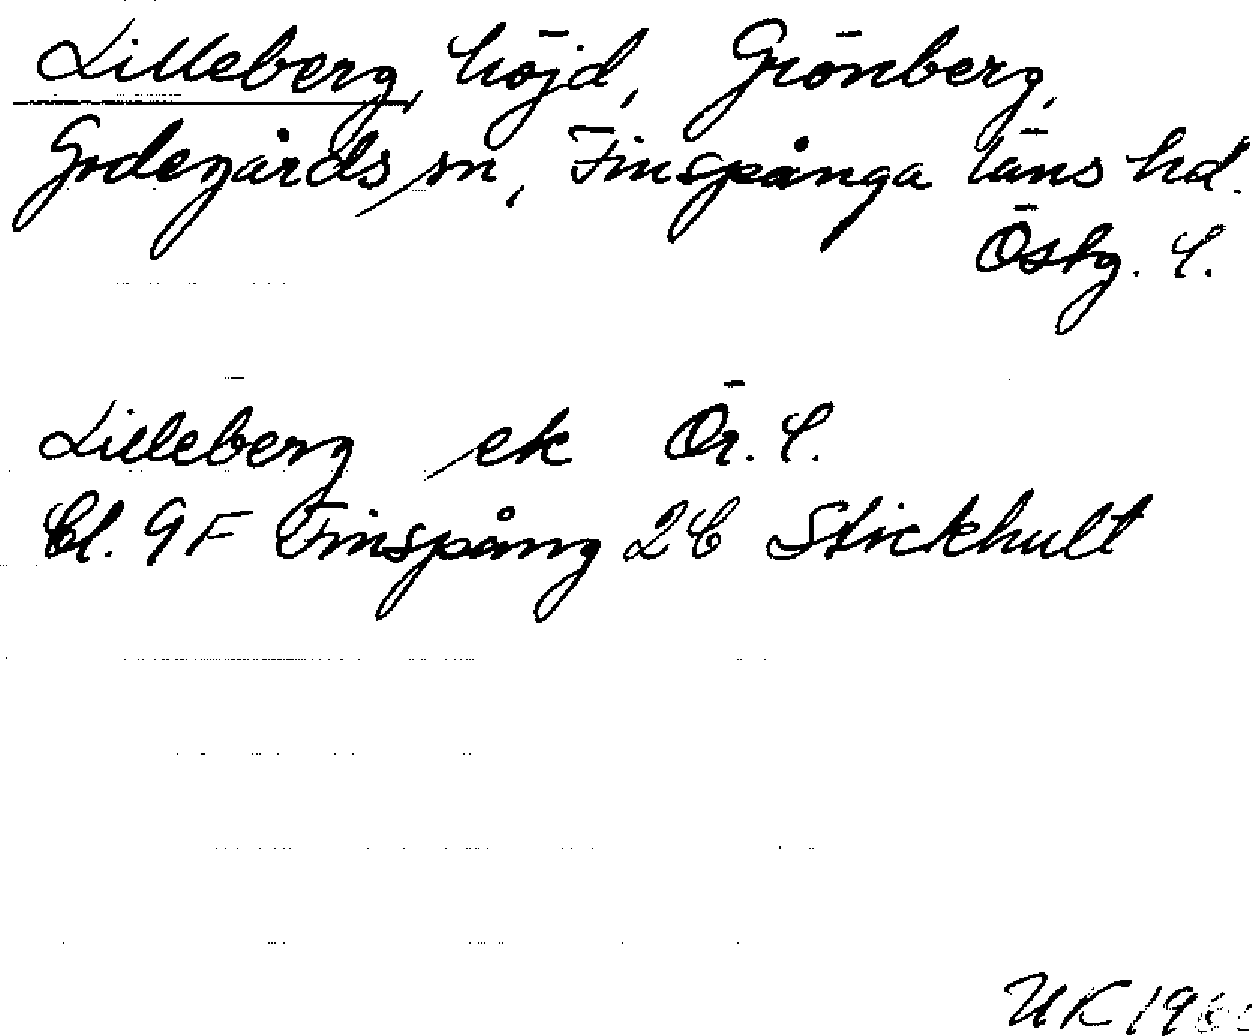 Lilleberg, höjd, Grönberg,
Godegårds sn, Finspånga läns hd.
Östg. l.
Lilleberg ek Ör. l.
Bl. 9F Finspång 2C Stickhult
UK